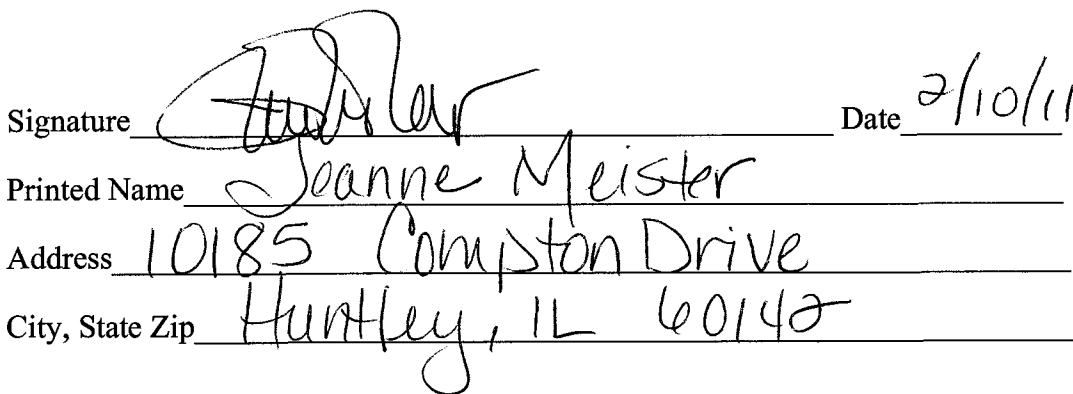 Signature Date 2/10/11
Printed Name Jeanne Meister
Address 10185 Compton Drive
City, State Zip Huntley, IL 60142